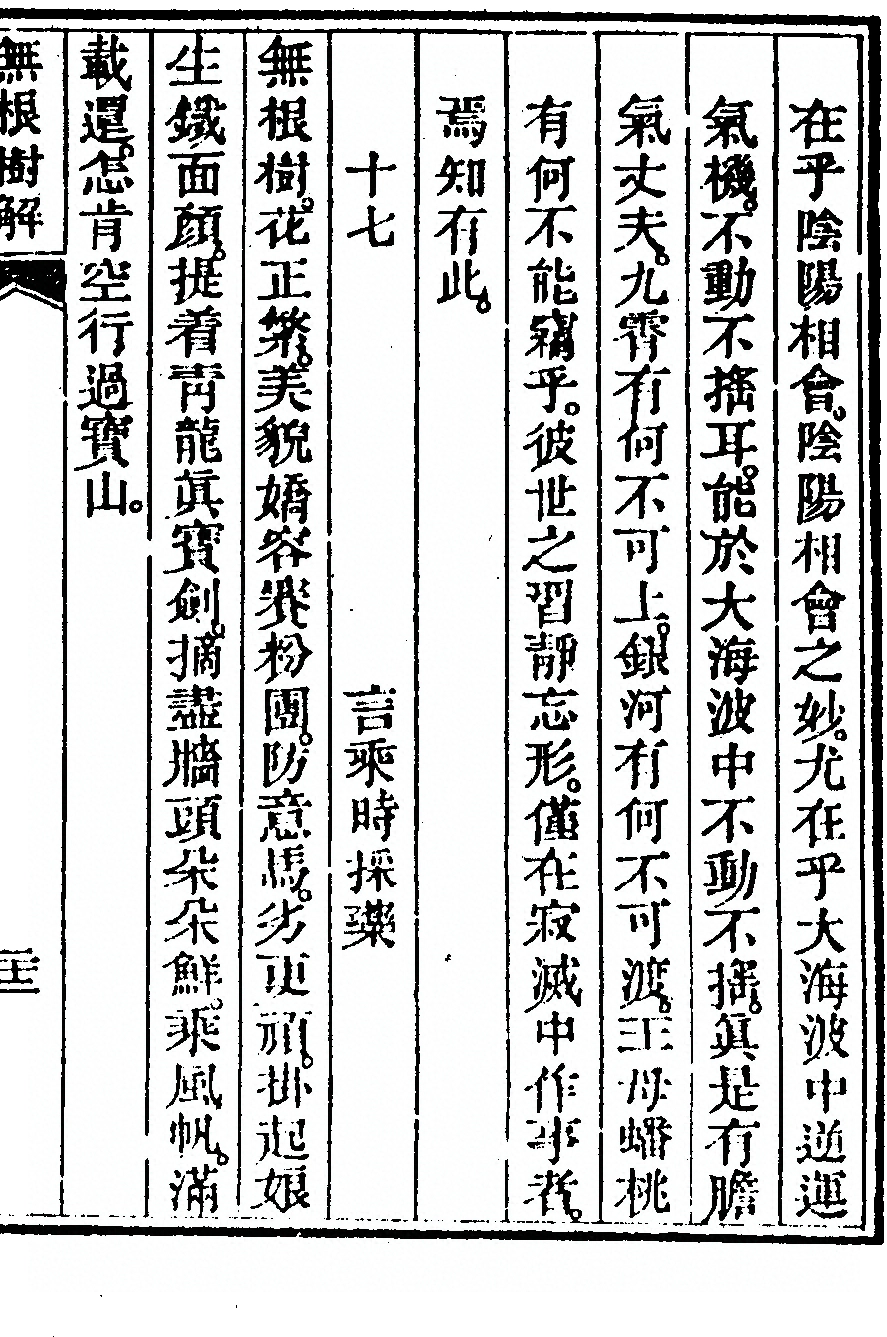 在乎陰陽相會。陰陽相會之妙。尤在乎大海波中逆運
氣機。不動不搖耳。能於大海波中不動不搖。眞是有膽
氣丈夫。九霄有何不可上。銀河有何不可渡。王母蟠桃
有何不能竊乎。彼世之習靜忘形。僅在寂滅中作事者。
焉知有此。
十七　言乘時採藥
無根樹。花正繁。美貌嬌容賽粉團。防意馬。劣更頑。掛起娘
生鐵面顏。提着靑龍眞寶劍。摘盡牆頭朵朵鮮。乘風帆。滿
載還。怎肯空行過寶山。
無根樹解　二十二